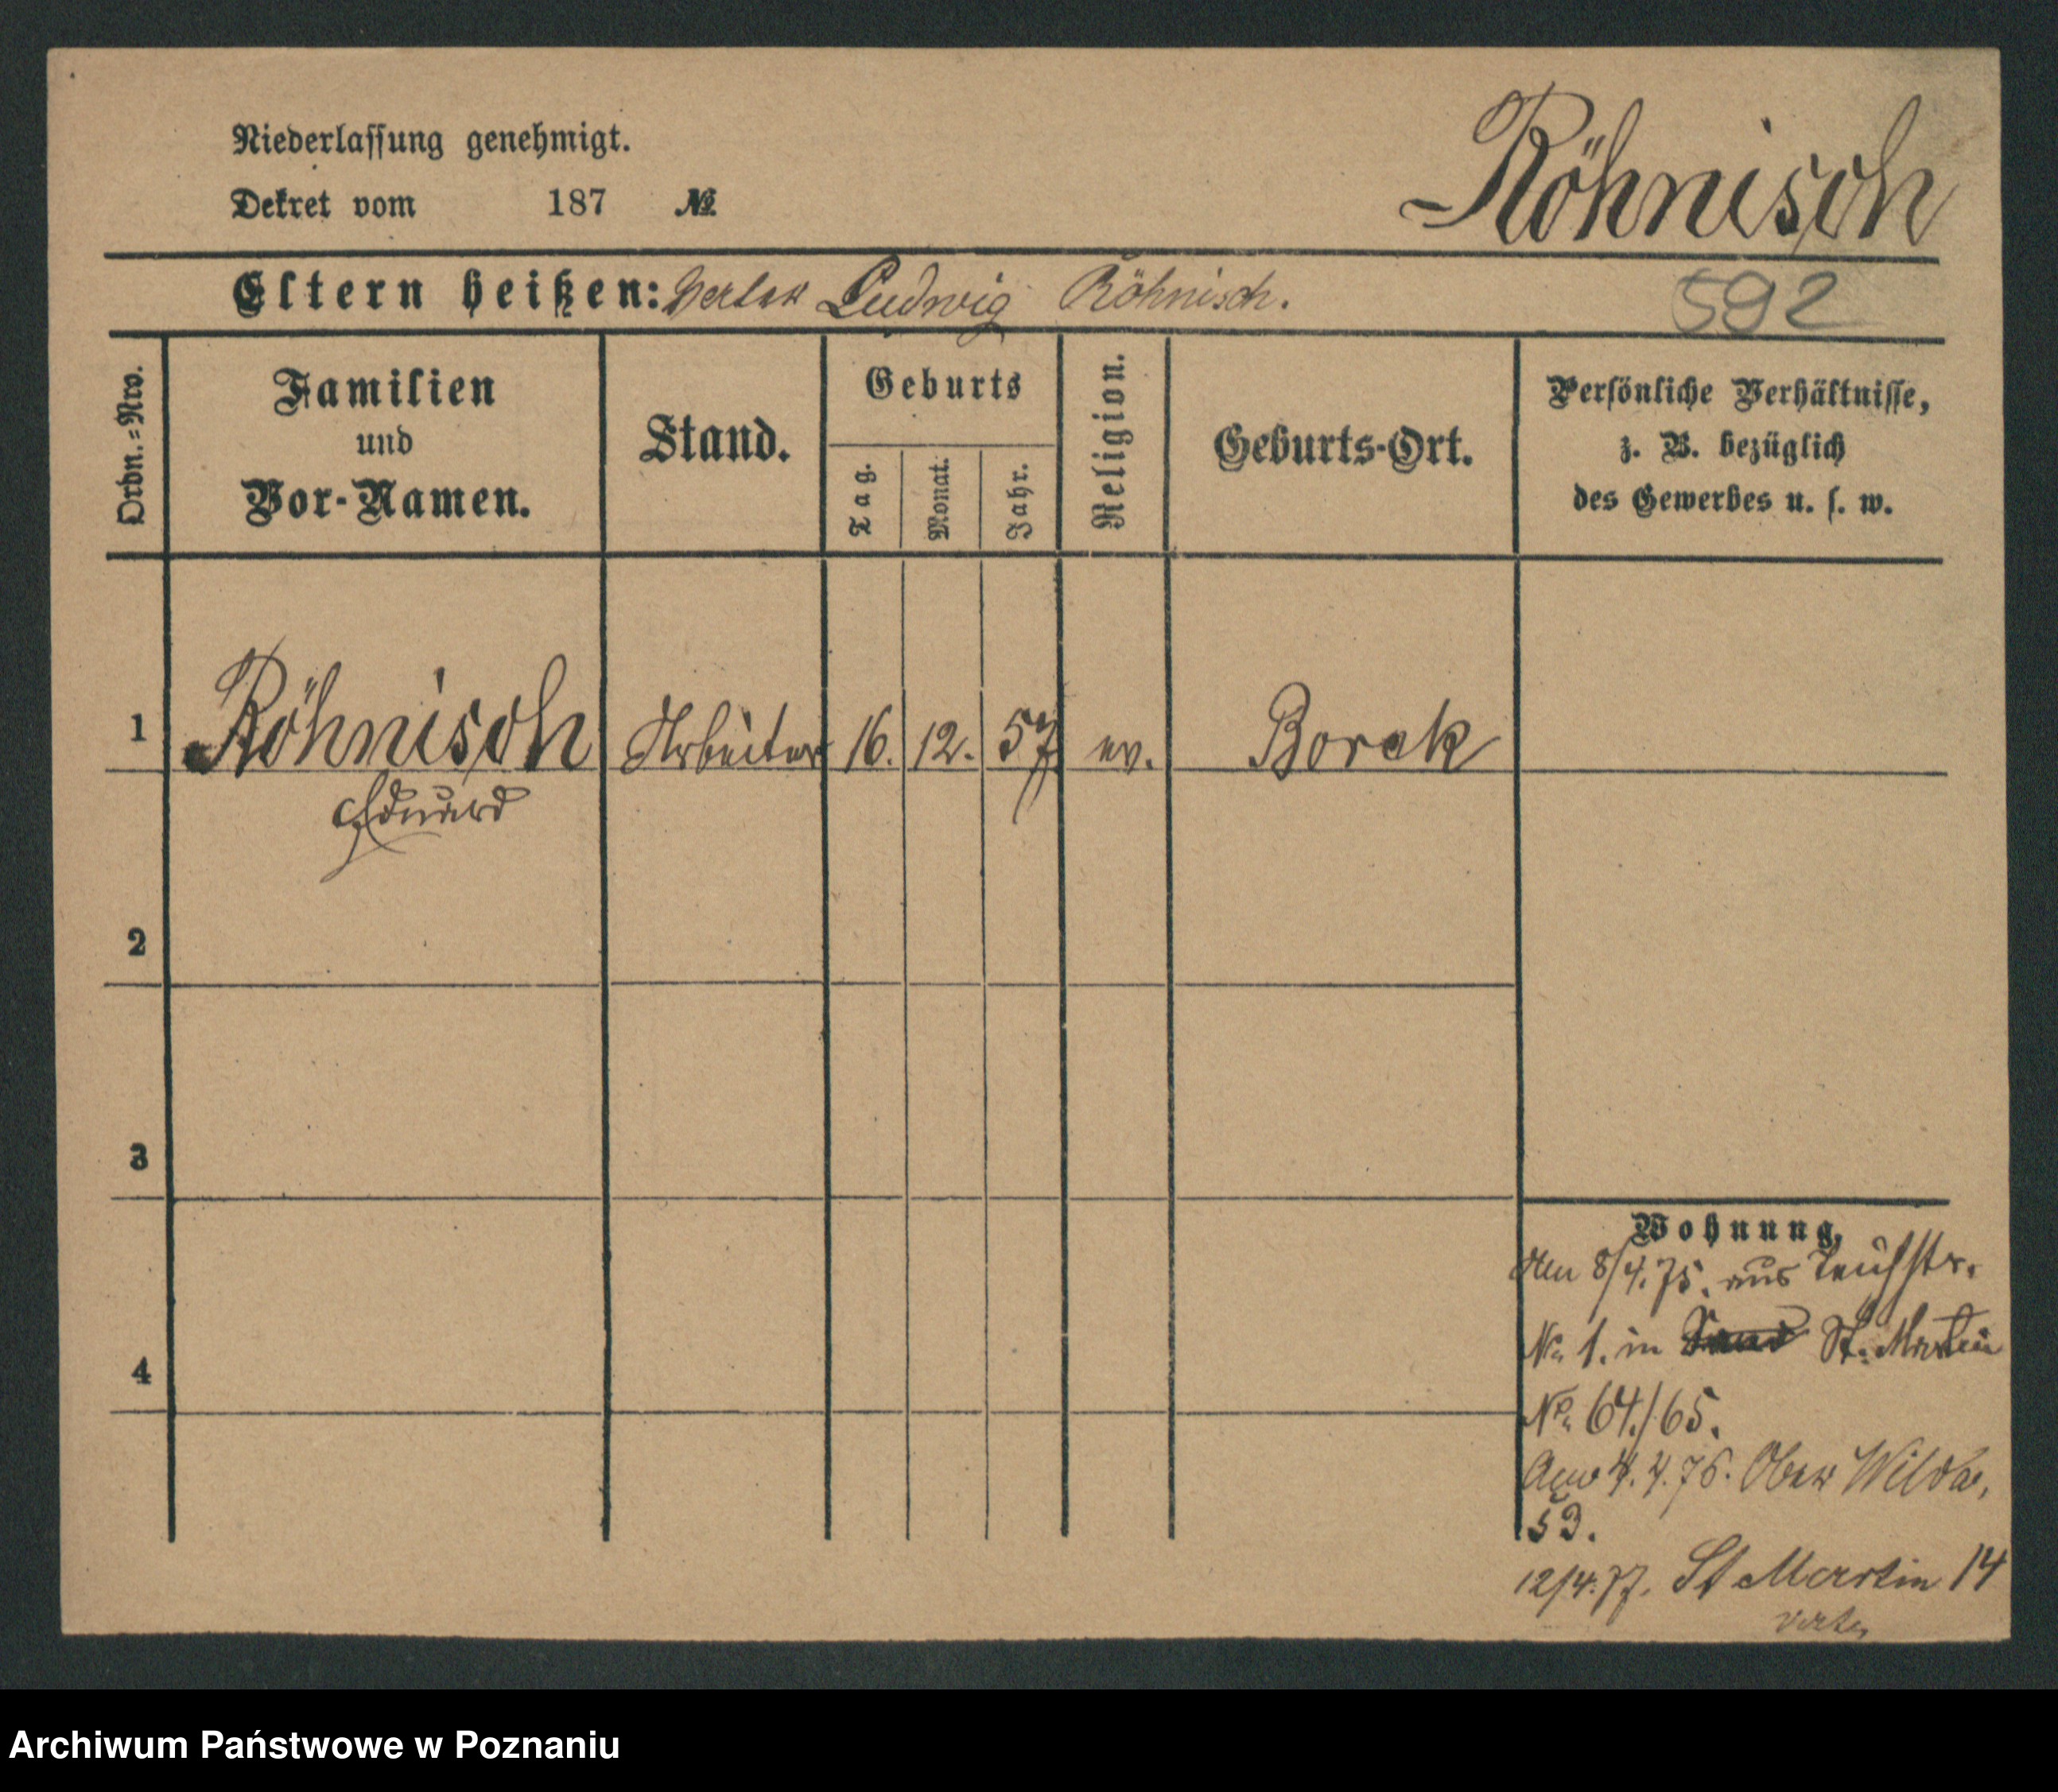 Niederlassung genehmigt.
Dekret vom 187 №
Röhnisch
Eltern heißen: Vater Ludwig Röhnisch.
592
Ordn.=Nro.
Familien
und
Vor-Namen.
Stand.
Geburts
Tag.
Monat.
Jahr.
Religion.
Geburts-Ort.
Persönliche Verhältnisse,
z. B. bezüglich
des Gewerbes u. s. w.
1 Röhnisch Arbeiter 16. 12. 57 ev. Borek
Eduard
2
3
4
Wohnung.
Am 8/4.75. aus Teichstr.
No 1. in St. Martin
No 64./65.
Am 4.4.76. Ober Wilda,
53.
12/4.77. St Martin 14
Archiwum Państwowe w Poznaniu